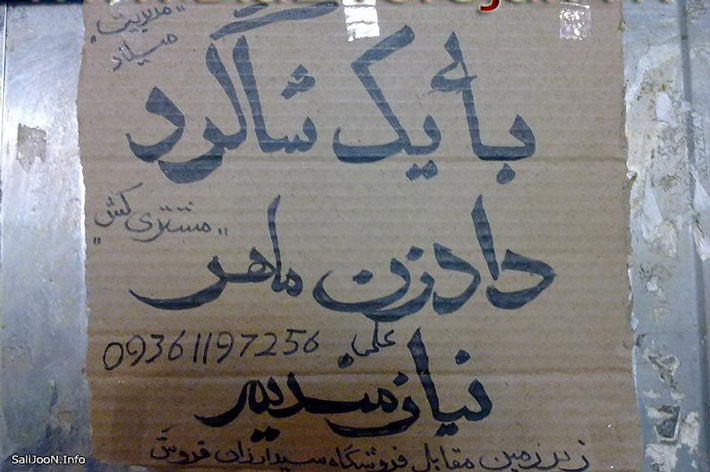 "مدیریت"
میلاد
بأ یک شاگرد
"مشتری کش"
داد زن ماهر
علی 09361197256
نیازمندیم
زیرزمین مقابل فروشگاه سید ارزان فروش
SaliJooN.Info